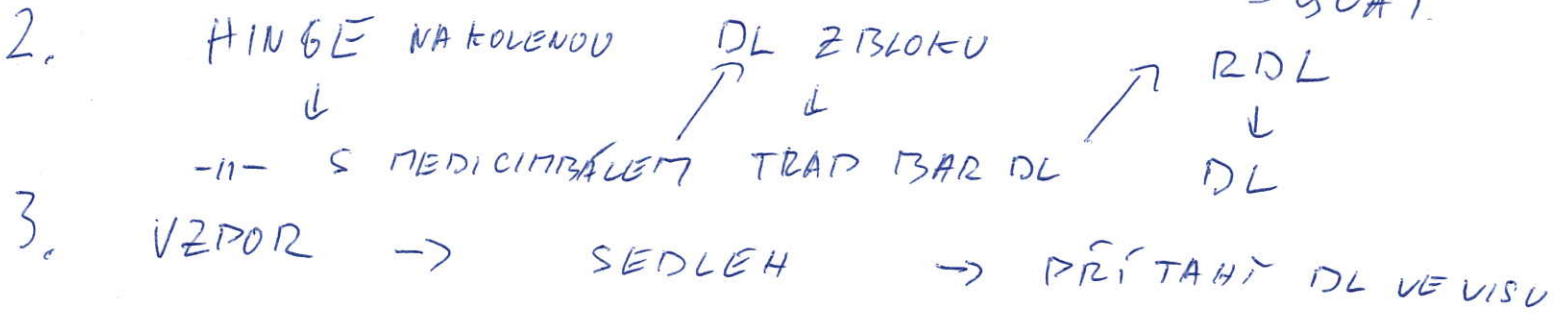 2. HINGE NA KOLENOU DL Z BLOKU RDL
↓ ↓ ↓
-11- S MEDICIMBÁLEM TRAP BAR DL DL
3. VZPOR -> SEDLEH -> PŘÍTAHY DL VE VISU